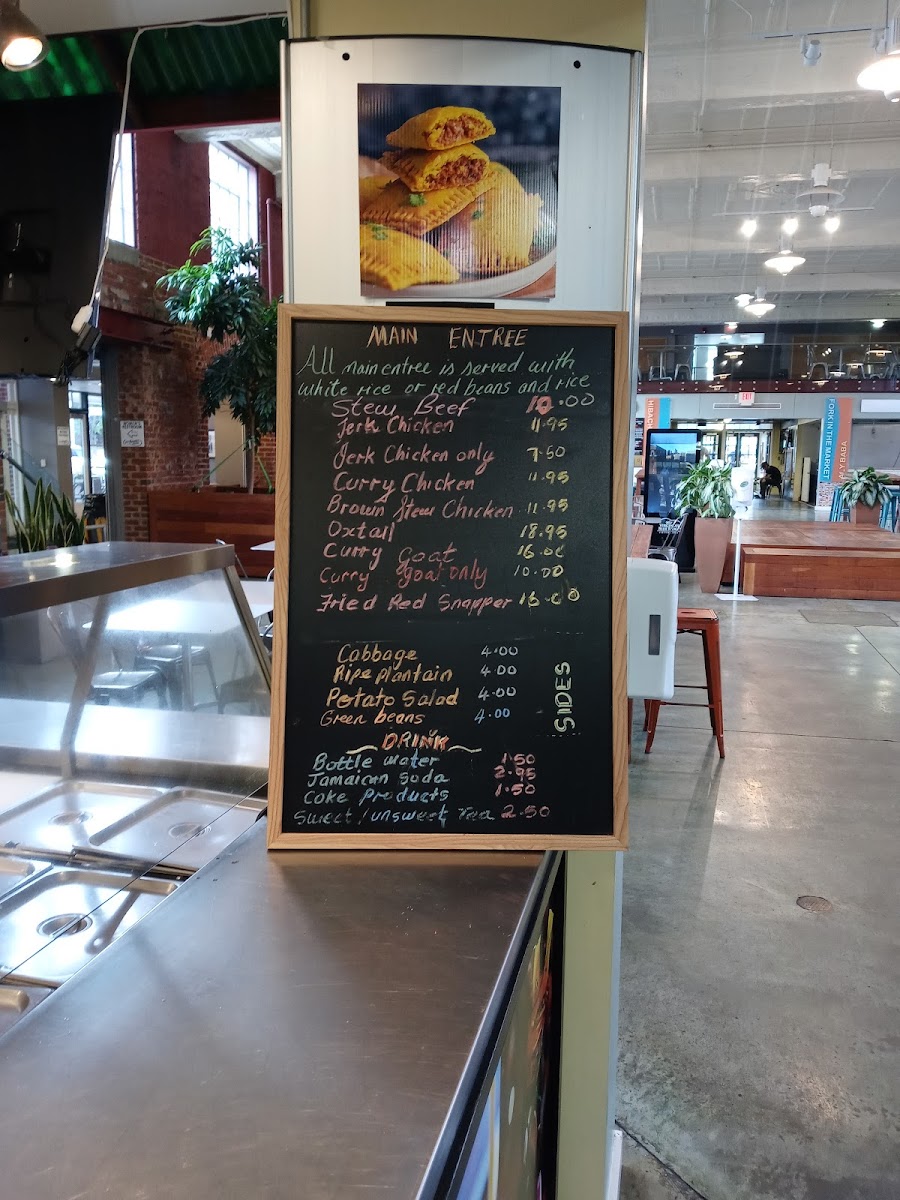 MAIN ENTREE
All main entree is served with
white rice or red beans and rice
Stew Beef 10.00
Jerk Chicken 11.95
Jerk Chicken only 7.50
Curry Chicken 11.95
Brown Stew Chicken 11.95
Oxtail 18.95
Curry Goat 16.00
Curry goat only 10.00
Fried Red Snapper 16.00
Cabbage 4.00
Ripe plantain 4.00
Potato Salad 4.00
Green beans 4.00
SIDES
DRINK
Bottle water 1.50
Jamaican Soda 2.95
Coke Products 1.50
Sweet/unsweet Tea 2.50
EXIT
FORK IN THE MARKET